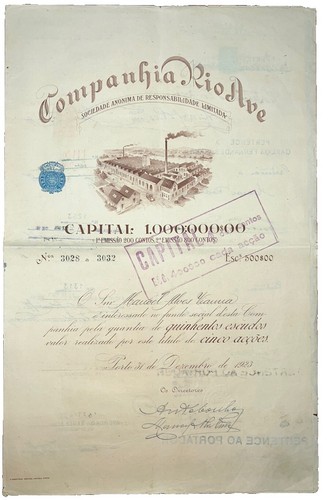 Companhia Rio Ave
SOCIEDADE ANONIMA DE RESPONSABILIDADE LIMITADA
CAPITAL: 1.000.000.00
1ª EMISSÃO 200 CONTOS, 2ª EMISSÃO 800 CONTOS
CAPITAL contos
cada acção
Nos 3028 a 3032 Esc. 500$00
O Snr. Manoel Alves
interessado no fundo social desta Com-
panhia pela quantia de quinhentos escudos
valor realizado por este titulo de cinco acções.
Porto 31 de Dezembro de 1923
Os Directores
PERTENCE AO PORTADOR